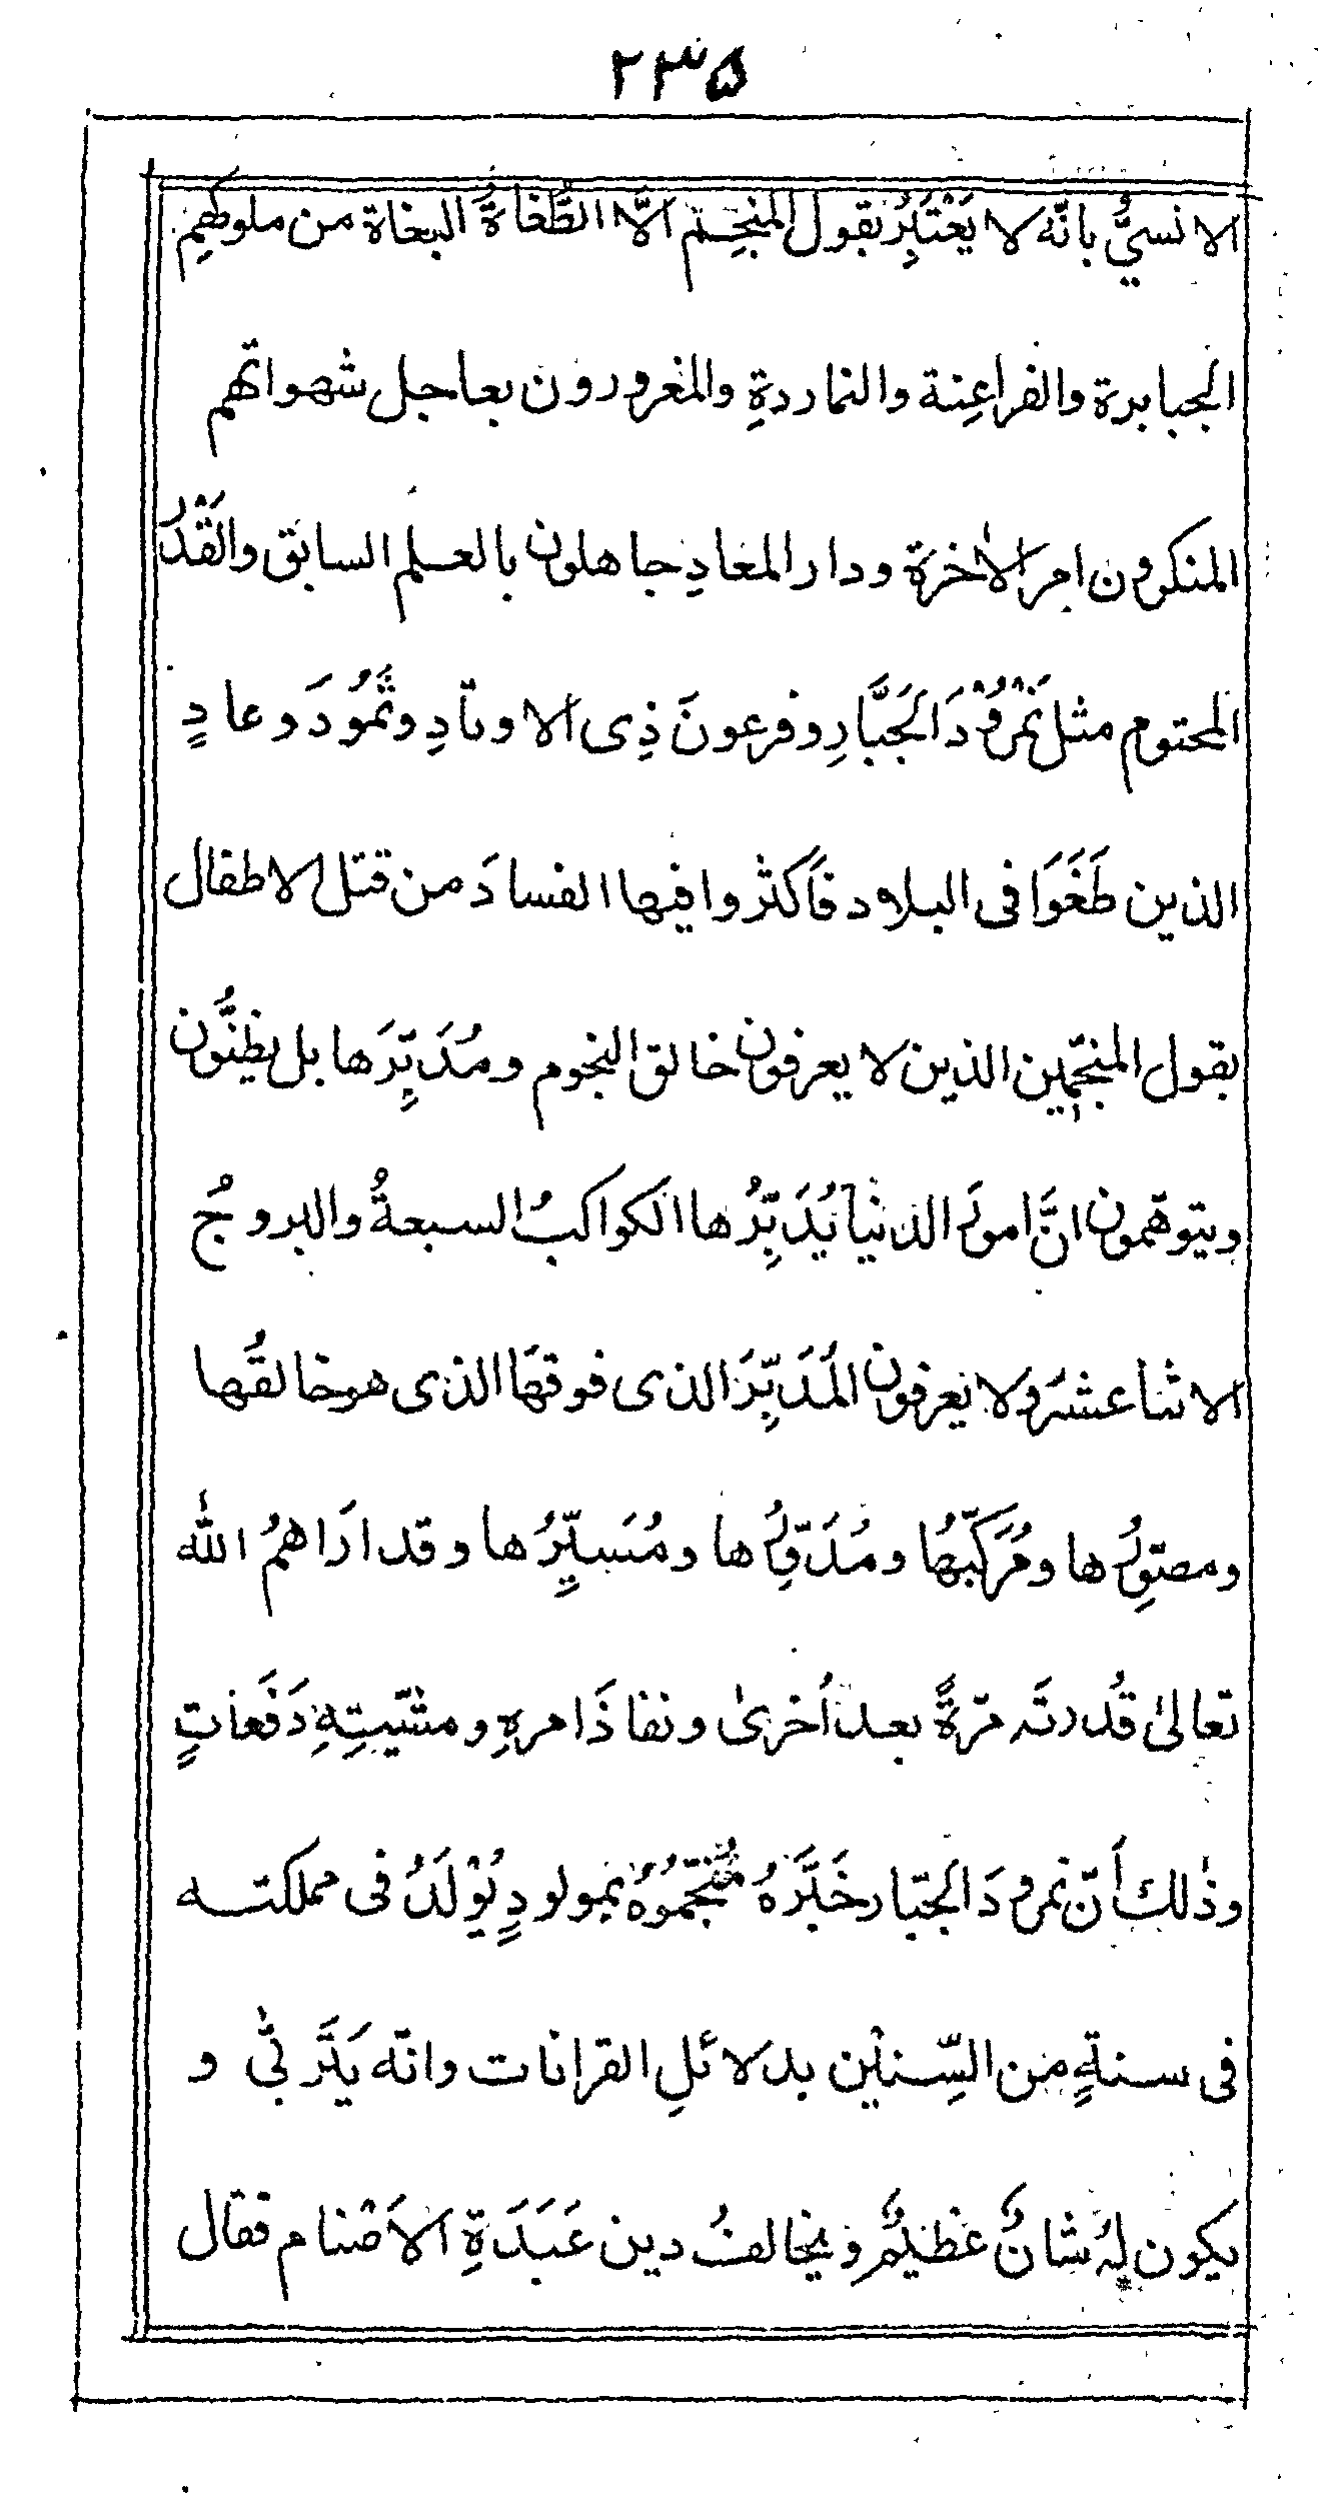 ۲۳۵
الانسیُّ بانّه لا یَغْتَبِرُ بقول المنجّم الّا الطُّغاةُ البغاة من ملوکهم
الجبابرة والفراعِنة والنماردةِ والمغرورون بعاجل شهواتهم
المنکرون امر الاٰخرة ودار المعادِ جاهلون بالعلم السابق والقَدْر
المحتوم مثل نَمْرُوْدَ الجَبَّارِ وفرعونَ ذِی الاوتادِ وثَمُوْدَ وعادٍ
الذین طَغَوَا فی البلاد فَاکثروا فیها الفسادَ من قتل الاطفال
بقول المنجّمین الذین لا یعرفون خالق النجوم ومُدَبِّرَها بل یظنُّون
ویتوهّمون انَّ امورَ الدنیا یُدَبِّرُها الکواکبُ السبعةُ والبروجُ
الاثنا عشرَ ولا یعرفون المُدَبِّرَ الذی فوقهَا الذی هو خالقُها
ومصوِّرُها ومُرَکّبُها ومُدَوِّرُها ومُسَیِّرُها وقد ارَاهمُ اللّٰه
تعالیٰ قُدرتَه مرّةً بعد اُخریٰ ونفاذَ امرهِ ومشیّتِهِ دَفَعاتٍ
وذٰلك اَنّ نمرودَ الجبّار خَبَّرَهُ مُنَجِّمُوْهُ بمولودٍ یُوْلَدُ فی مملکتـه
فی سنةٍ من السِّنیْن بدلائلِ القرانات وانّه یَتَرَبّٰی و
یکون لهُ شانٌ عَظیمٌ ویخالفُ دین عَبَدَةِ الاَصْنام فقال